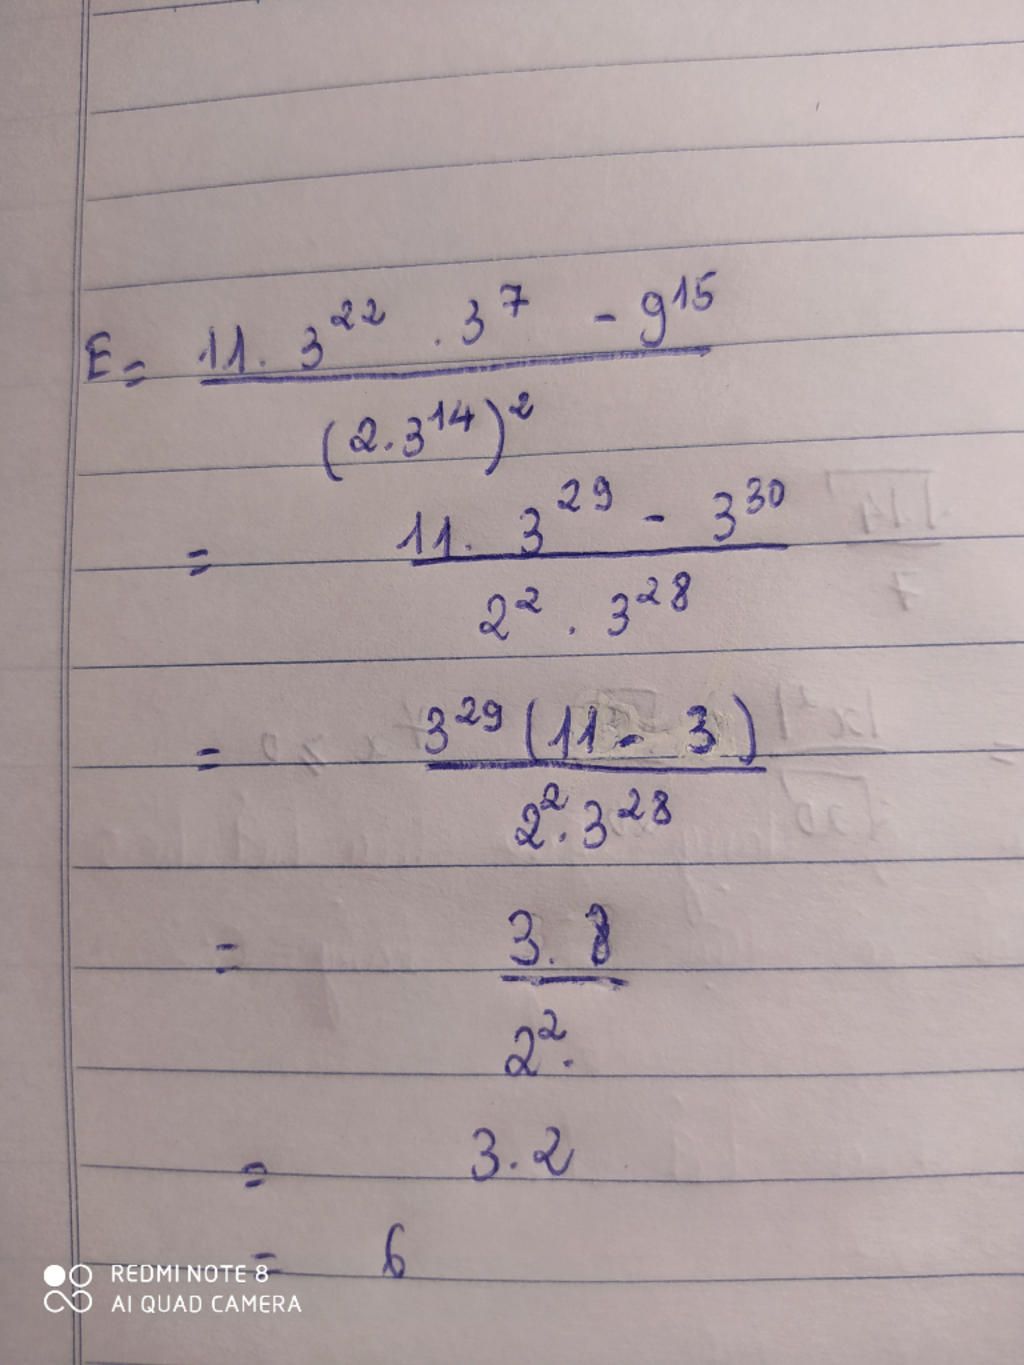 E = 11 . 3^22 . 3^7 - 9^15
(2 . 3^14)^2
= 11 . 3^29 - 3^30
2^2 . 3^28
= 3^29 (11 - 3)
2^2 . 3^28
= 3 . 8
2^2 .
= 3 . 2
= 6
REDMI NOTE 8
AI QUAD CAMERA